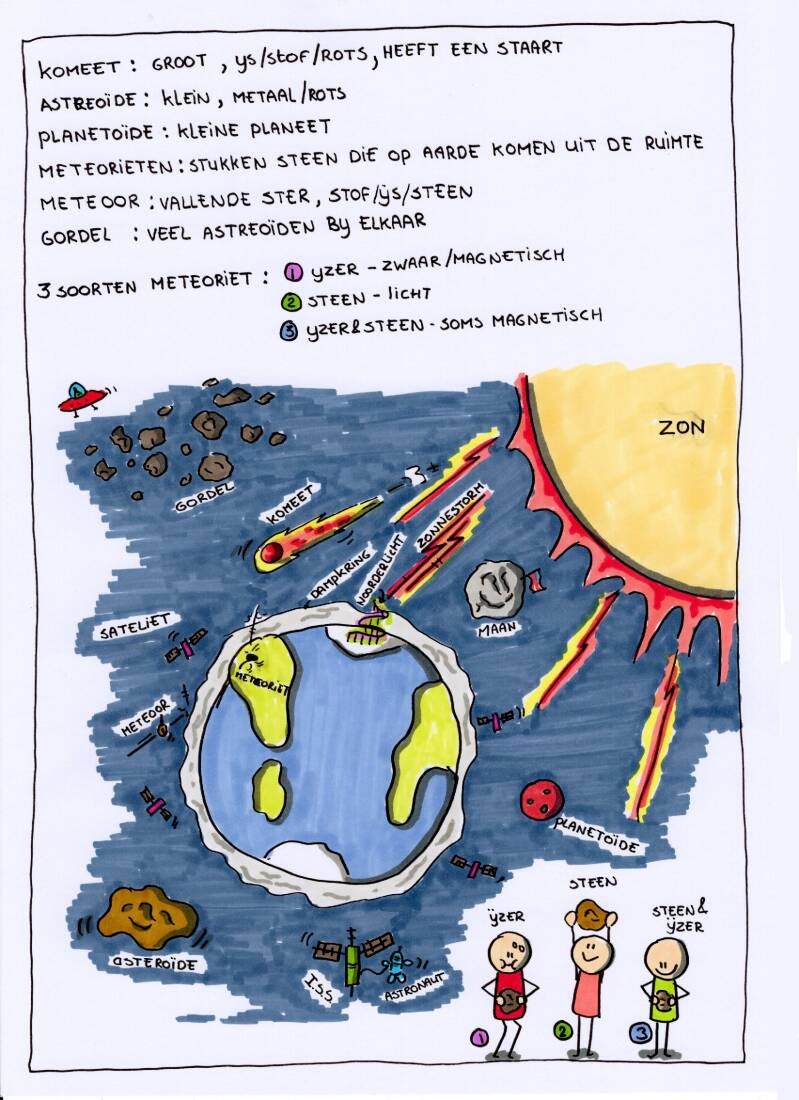 KOMEET : GROOT , ys/stof/ROTS, HEEFT EEN STAART
ASTREOÏDE : KLEIN , METAAL/ROTS
PLANETOÏDE : KLEINE PLANEET
METEORIETEN : STUKKEN STEEN DIE OP AARDE KOMEN UIT DE RUIMTE
METEOOR : VALLENDE STER, STOF/ÿs/STEEN
GORDEL : VEEL ASTREOÏDEN By ELKAAR
3 SOORTEN METEORIET : 1 yZER - ZWAAR/MAGNETISCH
2 STEEN - licht
3 yZER&STEEN - SOMS MAGNETISCH
ZON
GORDEL
KOMEET
DAMPKRING
NOORDERLICHT
ZONNESTORM
MAAN
SATELIET
METEORIET
METEOOR
PLANETOÏDE
ASTEROÏDE
I.S.S
ASTRONAUT
ÿZER
STEEN
STEEN &
ÿZER
1
2
3